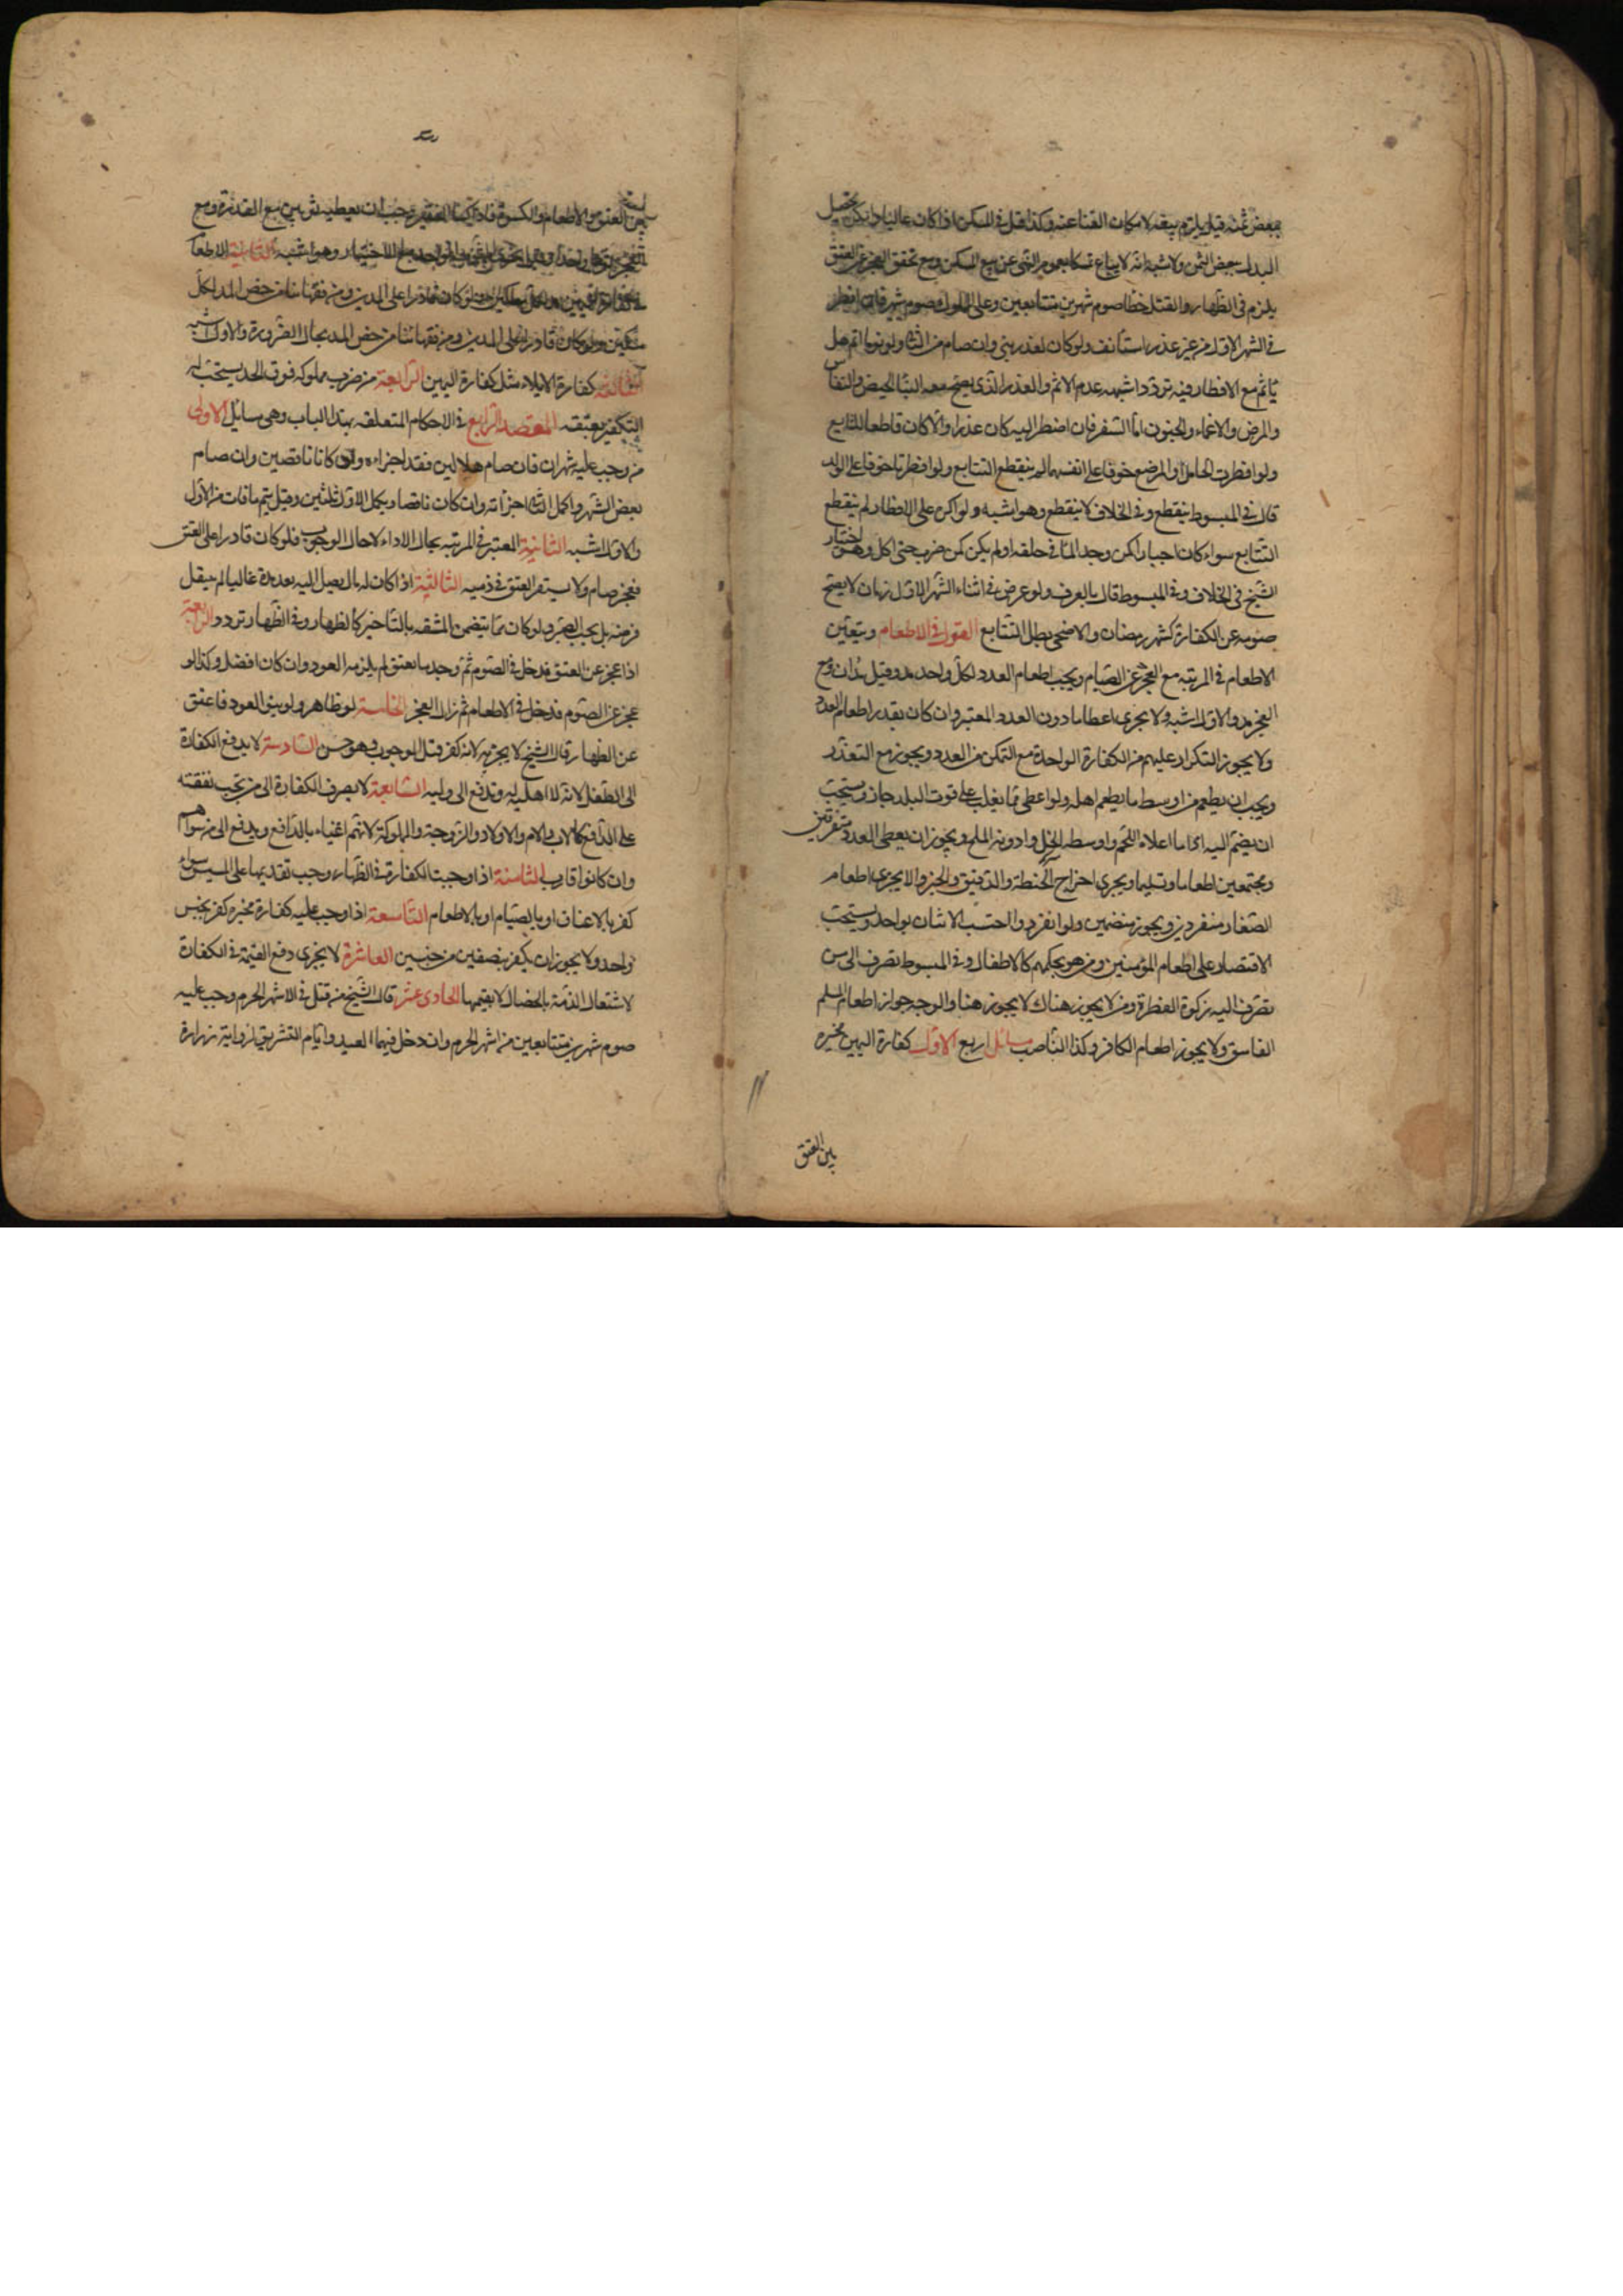 ببعض ثمنه قيل يلزم بيعه لامكان الغنا عنه وكذا قيل في المسكن اذا كان غاليا وامكن تحصيل
البدل ببعض الثمن والاشبه انه لا يباع تمسكا بعموم النهي عن بيع المسكن ومع تحقق العجز عن العتق
يلزم في الظهار والقتل خطا صوم شهرين متتابعين وعلى المملوك صوم شهر فان افطر
في الشهر الاول من غير عذر استأنف ولو كان لعذر بنى وان صام من الثاني ولو يوما اتم وهل
يأثم مع الافطار فيه تردد اشبهه عدم الاثم والعذر الذي يصح معه البنا الحيض والنفاس
والمرض والاغماء والجنون اما السفر فان اضطر اليه كان عذرا والا كان قاطعا للتتابع
ولو افطرت الحامل او المرضع خوفا على انفسهما لم ينقطع التتابع ولو افطرتا خوفا على الولد
قال في المبسوط ينقطع وفي الخلاف لا ينقطع وهو اشبه ولو اكره على الافطار لم ينقطع
التتابع سواء كان اجبارا كمن وجر الما في حلقه او لم يكن كمن ضرب حتى اكل وهو اختيار
الشيخ في الخلاف وفي المبسوط قال بالفرق ولو عرض في اثناء الشهر الاول زمان لا يصح
صومه عن الكفارة كشهر رمضان والاضحى بطل التتابع القول في الاطعام ويتعين
الاطعام في المرتبه مع العجز عن الصيام ويجب اطعام العدد لكل واحد مد وقيل مدان ومع
العجز مد والاول اشبه ولا يجزي اعطا ما دون العدد المعتبر وان كان بقدر اطعام العدد
ولا يجوز التكرار عليهم من الكفارة الواحدة مع التمكن من العدد ويجوز مع التعذر
ويجب ان يطعم من اوسط ما يطعم اهله ولو اعطى مما يغلب على قوت البلد جاز ويستحب
ان يضم اليه اداما اعلاه اللحم واوسطه الخل وادونه الملح ويجوز ان يعطي العدد متفرقين
ومجتمعين اطعاما وتسليما ويجزي اخراج الحنطة والدقيق والخبز ولا يجزي اطعام
الصغار منفردين ويجوز منضمين ولو انفردوا احتسب الاثنان بواحد ويستحب
الاقتصار على اطعام المؤمنين ومن هو بحكمهم كالاطفال وفي المبسوط تصرف الى من
تصرف اليه زكوة الفطرة ومن لا يجوز هناك لا يجوز هنا والوجه جواز اطعام المسلم
الفاسق ولا يجوز اطعام الكافر وكذا الناصب مسائل اربع الاولى كفارة اليمين مخيره
بين العتق
بين العتق والاطعام والكسوة فاذا كسا الفقير وجب ان يعطيه ثوبين مع القدرة ومع
العجز ثوبا واحدا وقيل يجزي الثوب الواحد مع الاختيار وهو اشبه الثانية الاطعام
مسكين ولو كان قادرا على المدين ومن فقهائنا من خص المد بحال الضرورة والاول اشبه
الثالثة كفارة الايلاء مثل كفارة اليمين الرابعة من ضرب مملوكه فوق الحد يستحب له
التكفير بعتقه المقصد الرابع في الاحكام المتعلقه بهذا الباب وهي مسائل الاولى
من وجب عليه شهران فان صام هلالين فقد اجزاءه ولو كانا ناقصين وان صام
بعض الشهر واكمل الثاني اجزأته وان كان ناقصا ويكمل الاول ثلثين وقيل يتم ما فات من الاول
والاول اشبه الثانية المعتبر في المرتبه بحال الاداء لا حال الوجوب فلو كان قادرا على العتق
فعجز صام ولا يستقر العتق في ذمته الثالثة اذا كان له مال يصل اليه بعد مدة غالبا لم ينتقل
فرضه بل يجب الصبر ولو كان مما يتضمن المشقه بالتأخير كالظهار وفي الظهار تردد الرابعة
اذا عجز عن العتق فدخل في الصوم ثم وجد ما يعتق لم يلزمه العود وان كان افضل وكذا لو
عجز عن الصوم فدخل في الاطعام ثم زال العجز الخامسة لو ظاهر ولو ينو العود فاعتق
عن الظهار قال الشيخ لا يجزيه لانه كفر قبل الوجوب وهو حسن السادسة لا يدفع الكفارة
الى الطفل لانه لا اهلية له وتدفع الى وليه السابعة لا يصرف الكفارة الى من تجب نفقته
على الدافع كالاب والام والاولاد والزوجة والمملوكة لانهم اغنياء بالدافع ويدفع الى من سواهم
وان كانوا اقارب الثامنة اذا وجبت الكفارة في الظهار وجب تقديمها على المسيس سواء
كفر بالاعتاق او بالصيام او بالاطعام التاسعة اذا وجب عليه كفارة مخيره كفر بجنس
واحد ولا يجوز ان يكفر بنصفين من جنسين العاشرة لا يجزي دفع القيمة في الكفارة
لاشتغال الذمة بالخصال لا بقيمتها الحادي عشر قال الشيخ من قتل في الاشهر الحرم وجب عليه
صوم شهرين متتابعين من اشهر الحرم وان دخل فيهما العيد وايام التشريق لرواية زرارة